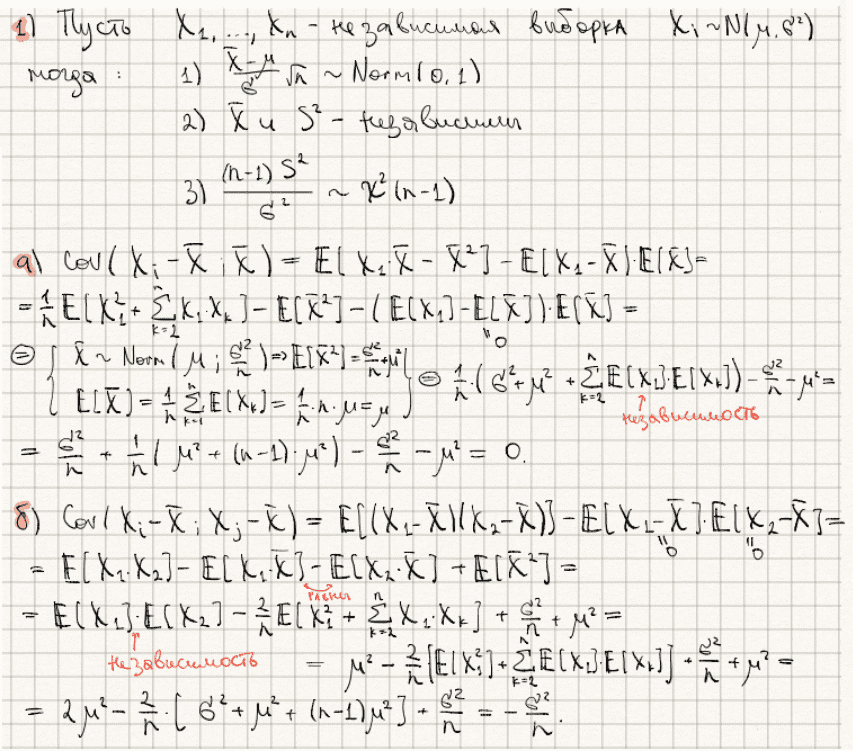 1) Пусть X₁, ..., Xₙ - независимая выборка Xᵢ ~ N(μ, σ²)
тогда : 1) (X̄ - μ)/σ √n ~ Norm(0, 1)
2) X̄ и S² - независимы
3) (n-1) S² / σ² ~ χ²(n-1)
а) Cov(Xᵢ - X̄ ; X̄) = E[X₁·X̄ - X̄²] - E[X₁ - X̄]·E[X̄] =
= 1/n E[X₁² + ∑ₖ₌₂ⁿ X₁·Xₖ] - E[X̄²] - (E[X₁] - E[X̄])·E[X̄] =
"0
⊜ { X̄ ~ Norm(μ ; σ²/n) => E[X̄²] = σ²/n + μ²
E[X̄] = 1/n ∑ₖ₌₁ⁿ E[Xₖ] = 1/n · n · μ = μ } ⊜ 1/n · (σ² + μ² + ∑ₖ₌₂ⁿ E[X₁]·E[Xₖ]) - σ²/n - μ² =
↑ независимость
= σ²/n + 1/n (μ² + (n-1)·μ²) - σ²/n - μ² = 0.
б) Cov(Xᵢ - X̄ ; Xⱼ - X̄) = E[(X₁ - X̄)(X₂ - X̄)] - E[X₁ - X̄]·E[X₂ - X̄] =
"0 "0
= E[X₁·X₂] - E[X₁·X̄] - E[X₂·X̄] + E[X̄²] =
равны
= E[X₁]·E[X₂] - 2/n E[X₁² + ∑ₖ₌₂ⁿ X₁·Xₖ] + σ²/n + μ² =
↑ независимость
= μ² - 2/n [E[X₁²] + ∑ₖ₌₂ⁿ E[X₁]·E[Xₖ]] + σ²/n + μ² =
= 2μ² - 2/n · [σ² + μ² + (n-1)μ²] + σ²/n = - σ²/n.